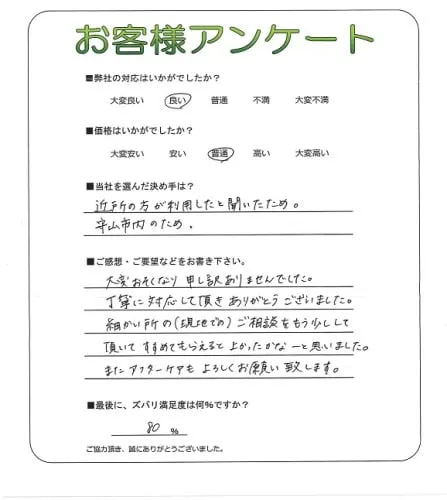 お客様アンケート
■弊社の対応はいかがでしたか？
大変良い 良い 普通 不満 大変不満
■価格はいかがでしたか？
大変安い 安い 普通 高い 大変高い
■当社を選んだ決め手は？
近所の方が利用したと聞いたため。
守山市内のため。
■ご感想・ご要望などをお書き下さい。
大変おそくなり申し訳ありませんでした。
丁寧に対応して頂きありがとうございました。
細かい所の(現地での)ご相談をもう少しして
頂いてすすめてもらえると上かったかなーと思いました。
またアフターケアもよろしくお願い致します。
■最後に、ズバリ満足度は何%ですか？
80 %
ご協力頂き、誠にありがとうございました。